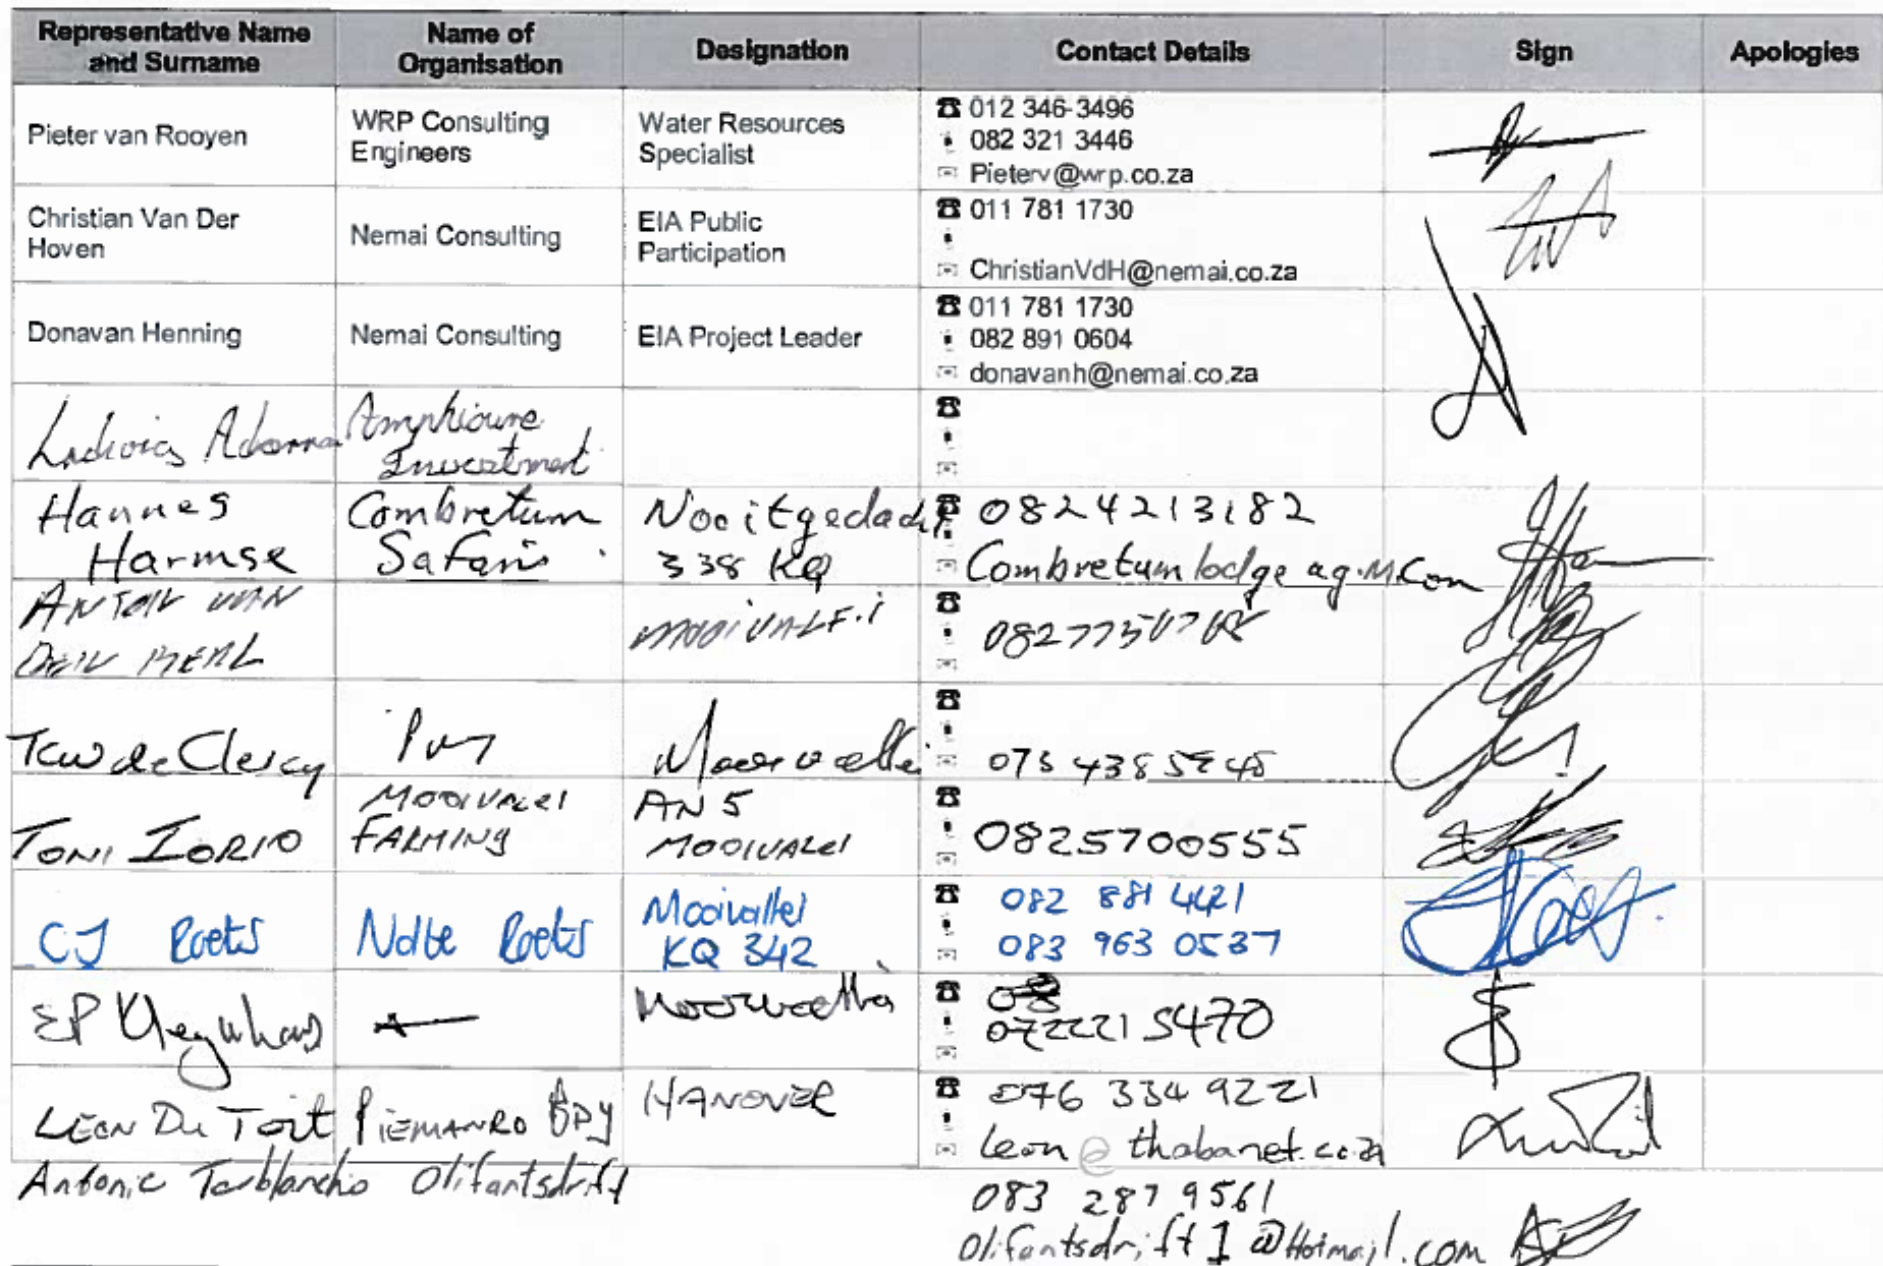 Representative Name and Surname
Name of Organisation
Designation
Contact Details
Sign
Apologies
Pieter van Rooyen
WRP Consulting
Engineers
Water Resources
Specialist
012 346-3496
082 321 3446
Pieterv@wrp.co.za
Christian Van Der
Hoven
Nemai Consulting
EIA Public
Participation
011 781 1730
ChristianVdH@nemai.co.za
Donavan Henning
Nemai Consulting
EIA Project Leader
011 781 1730
082 891 0604
donavanh@nemai.co.za
Investment
Hannes
Harmse
Combretum
Safaris
Nooitgedacht
338 KQ
0824213182
Combretum lodge
ANTON VAN
DER MERL
MOOIVALEI
de Clercq
TONI IORIO
MOOIVALEI
FARMING
AN 5
MOOIVALEI
0825700555
CJ Roets
Nolte Roets
Mooivallei
KQ 342
082 881 4421
083 963 0537
EP
0722215470
LEON Du Toit
HANOVER
076 334 9221
leon@thabanet.co.za
Olifantsdrift
083 287 9561
Olifantsdrift1@Hotmail.com